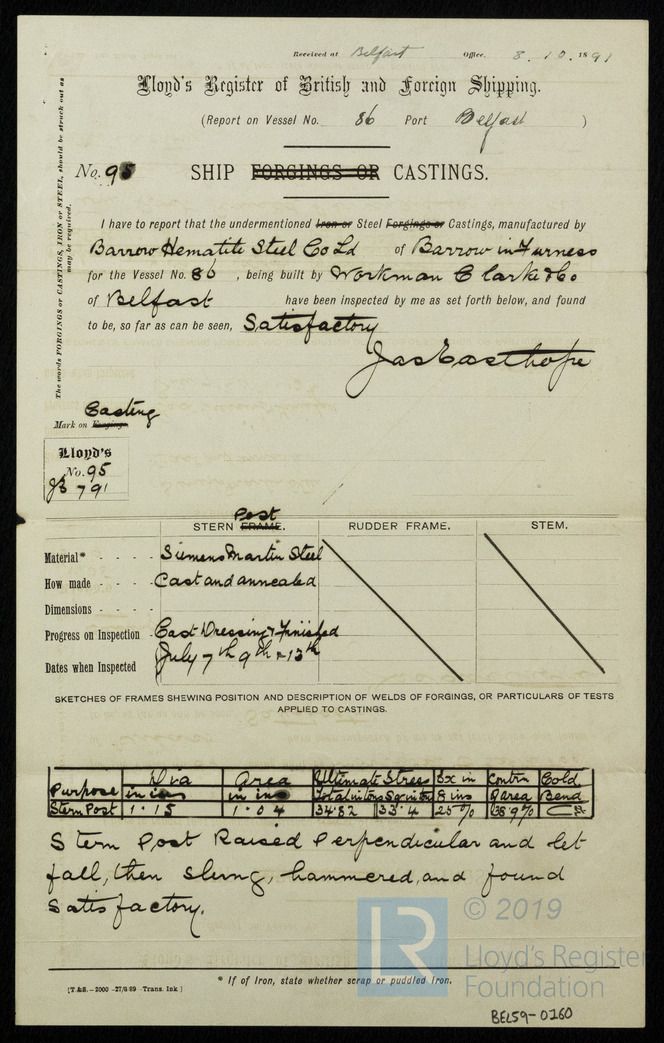 Received at Belfast Office. 8. 10. 1891
Lloyd's Register of British and Foreign Shipping.
(Report on Vessel No. 86 Port Belfast )
No. 95 SHIP FORGINGS OR CASTINGS.
The words FORGINGS or CASTINGS, IRON or STEEL, should be struck out as
may be required.
I have to report that the undermentioned Iron or Steel Forgings or Castings, manufactured by
Barrow Hematite Steel Co Ld of Barrow in Furness
for the Vessel No. 86 , being built by Workman Clarke & Co
of Belfast have been inspected by me as set forth below, and found
to be, so far as can be seen, Satisfactory
Jas Easthope
Casting
Mark on Forgings.
Lloyd's
No. 95
JE 7 91
Post
STERN FRAME. RUDDER FRAME. STEM.
Material* - - - - Siemens Martin Steel
How made - - - - Cast and annealed
Dimensions - - - -
Progress on Inspection - Cast Dressing & Finished
Dates when Inspected July 7th 9th & 13th
SKETCHES OF FRAMES SHEWING POSITION AND DESCRIPTION OF WELDS OF FORGINGS, OR PARTICULARS OF TESTS
APPLIED TO CASTINGS.
Dia Area Ultimate Stress Ex in Contrn Cold
Purpose in ins in ins Total in tons Sq in tons 8 ins of area Bend
Stern Post 1·15 1·04 34·82 33·4 25% 38·9%
Stern Post Raised Perpendicular and let
fall, then slung, hammered, and found
Satisfactory.
* If of Iron, state whether scrap or puddled Iron.
[T.&S.—2000 —27/8/89—Trans. Ink]
LR © 2019
Lloyd's Register
Foundation
BEL59-0260